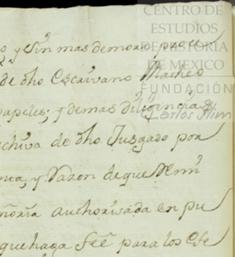 CENTRO DE
ESTUDIOS
DE HISTORIA
DE MEXICO
FUNDACIÓN
Carlos Slim
y sin mas demora
de dho Escrivano
papeles; y demas diligencias
de dho Juzgado por
y Razon de que
authorisada en pu
que haga feé para los efe